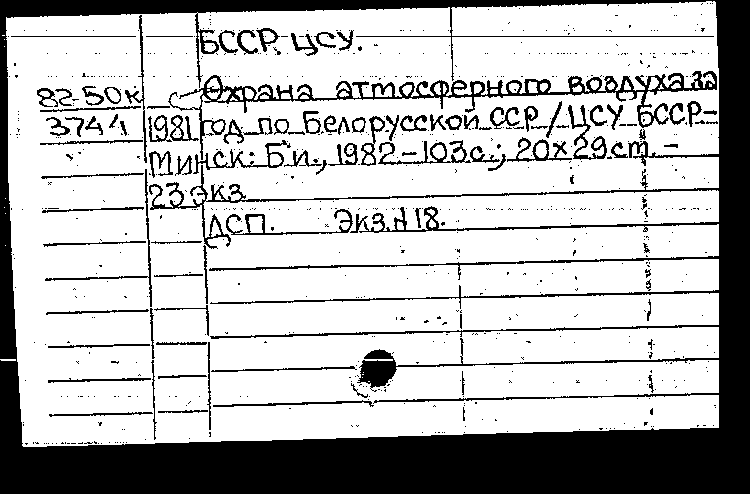 БССР. ЦСУ.
82-50к Охрана атмосферного воздуха за
3744 1981 год по Белорусской ССР / ЦСУ БССР-
Минск: Б.и., 1982-103с.; 20×29ст. -
23 экз
ДСП. Экз.№18.